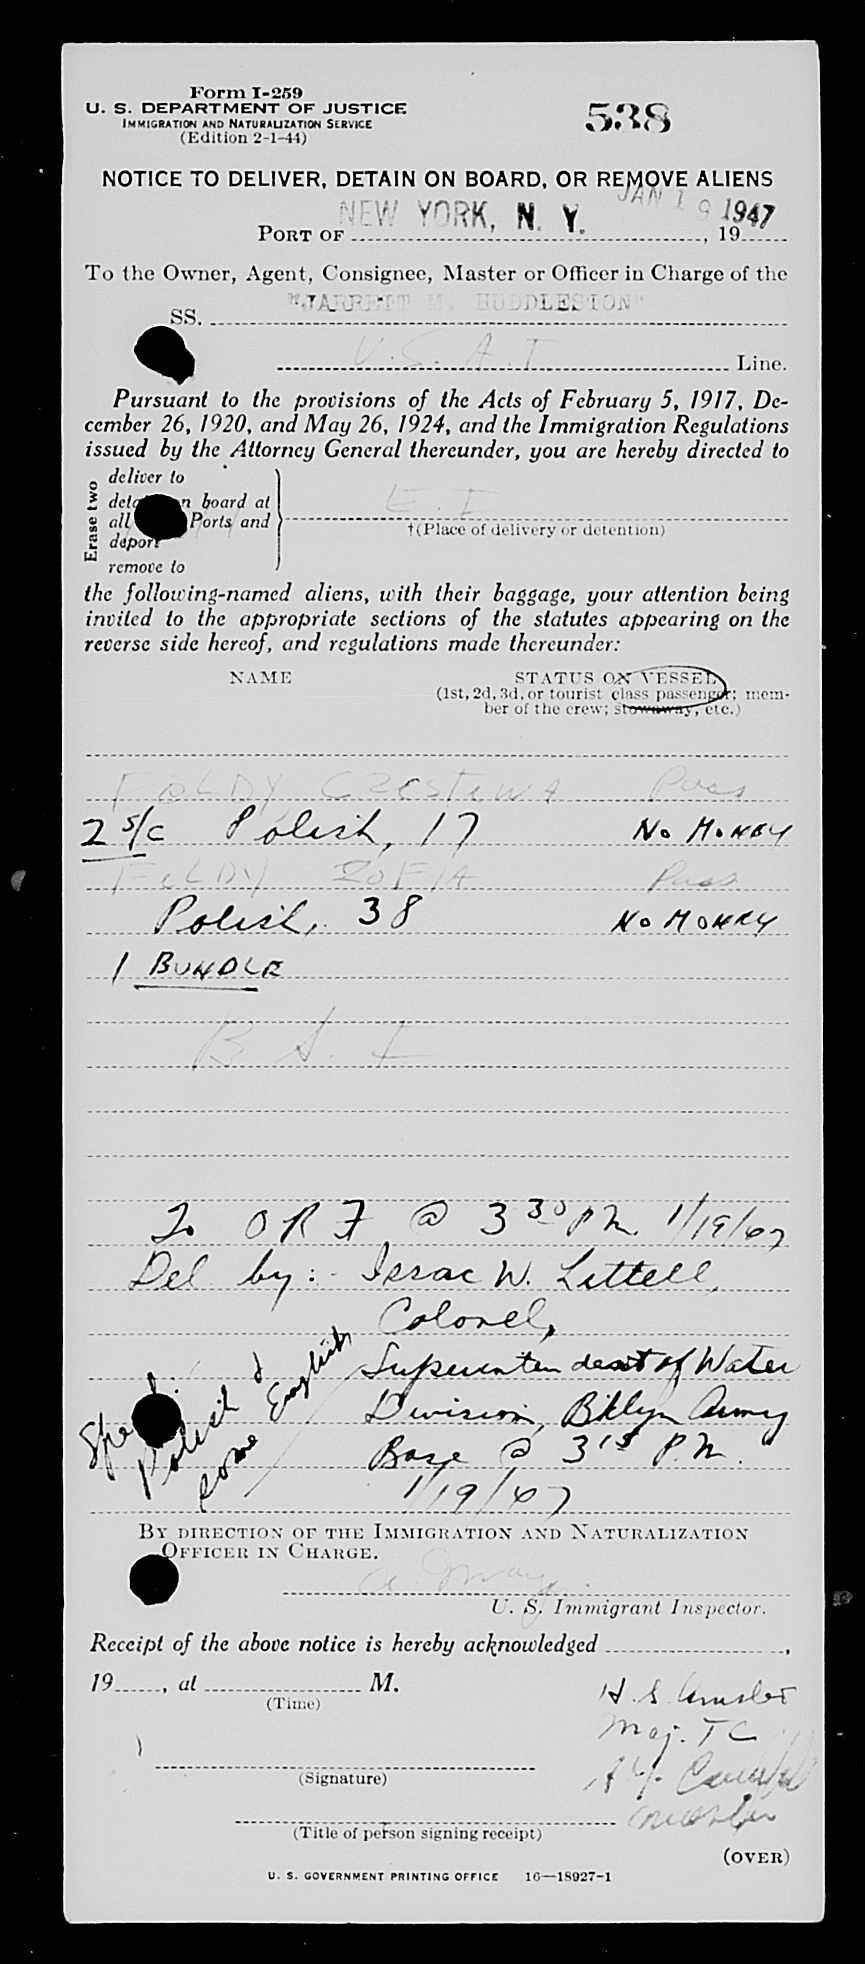 Form I-259
U. S. DEPARTMENT OF JUSTICE
IMMIGRATION AND NATURALIZATION SERVICE
(Edition 2-1-44)
538
NOTICE TO DELIVER, DETAIN ON BOARD, OR REMOVE ALIENS
JAN 19 1947
PORT OF NEW YORK, N. Y., 19
To the Owner, Agent, Consignee, Master or Officer in Charge of the
SS. "JARRETT M. HUDDLESTON"
U. S. A. T Line.
Pursuant to the provisions of the Acts of February 5, 1917, De-
cember 26, 1920, and May 26, 1924, and the Immigration Regulations
issued by the Attorney General thereunder, you are hereby directed to
Erase two
deliver to
on board at
all Ports and
deport
remove to
E. I
†(Place of delivery or detention)
the following-named aliens, with their baggage, your attention being
invited to the appropriate sections of the statutes appearing on the
reverse side hereof, and regulations made thereunder:
NAME STATUS ON VESSEL
(1st, 2d, 3d, or tourist class passenger; mem-
ber of the crew; stowaway, etc.)
FOLDY CZESTAWA Pass
2 S/C Polish, 17 No Money
FOLDY ZOFIA Pass
Polish, 38 No Money
1 BUNDLE
B. S. I
To ORF @ 3 30 PM 1/19/47
Del by:- Issac W. Littell,
Colonel,
Superintendent of Water
Division, Bklyn Army
Base @ 3 15 P.M.
1/19/47
Polish &
some English
BY DIRECTION OF THE IMMIGRATION AND NATURALIZATION
OFFICER IN CHARGE.
U. S. Immigrant Inspector.
Receipt of the above notice is hereby acknowledged ,
19 , at M.
(Time)
H. S.
Maj. T C
(Signature)
(Title of person signing receipt)
(OVER)
U. S. GOVERNMENT PRINTING OFFICE 16—18927-1